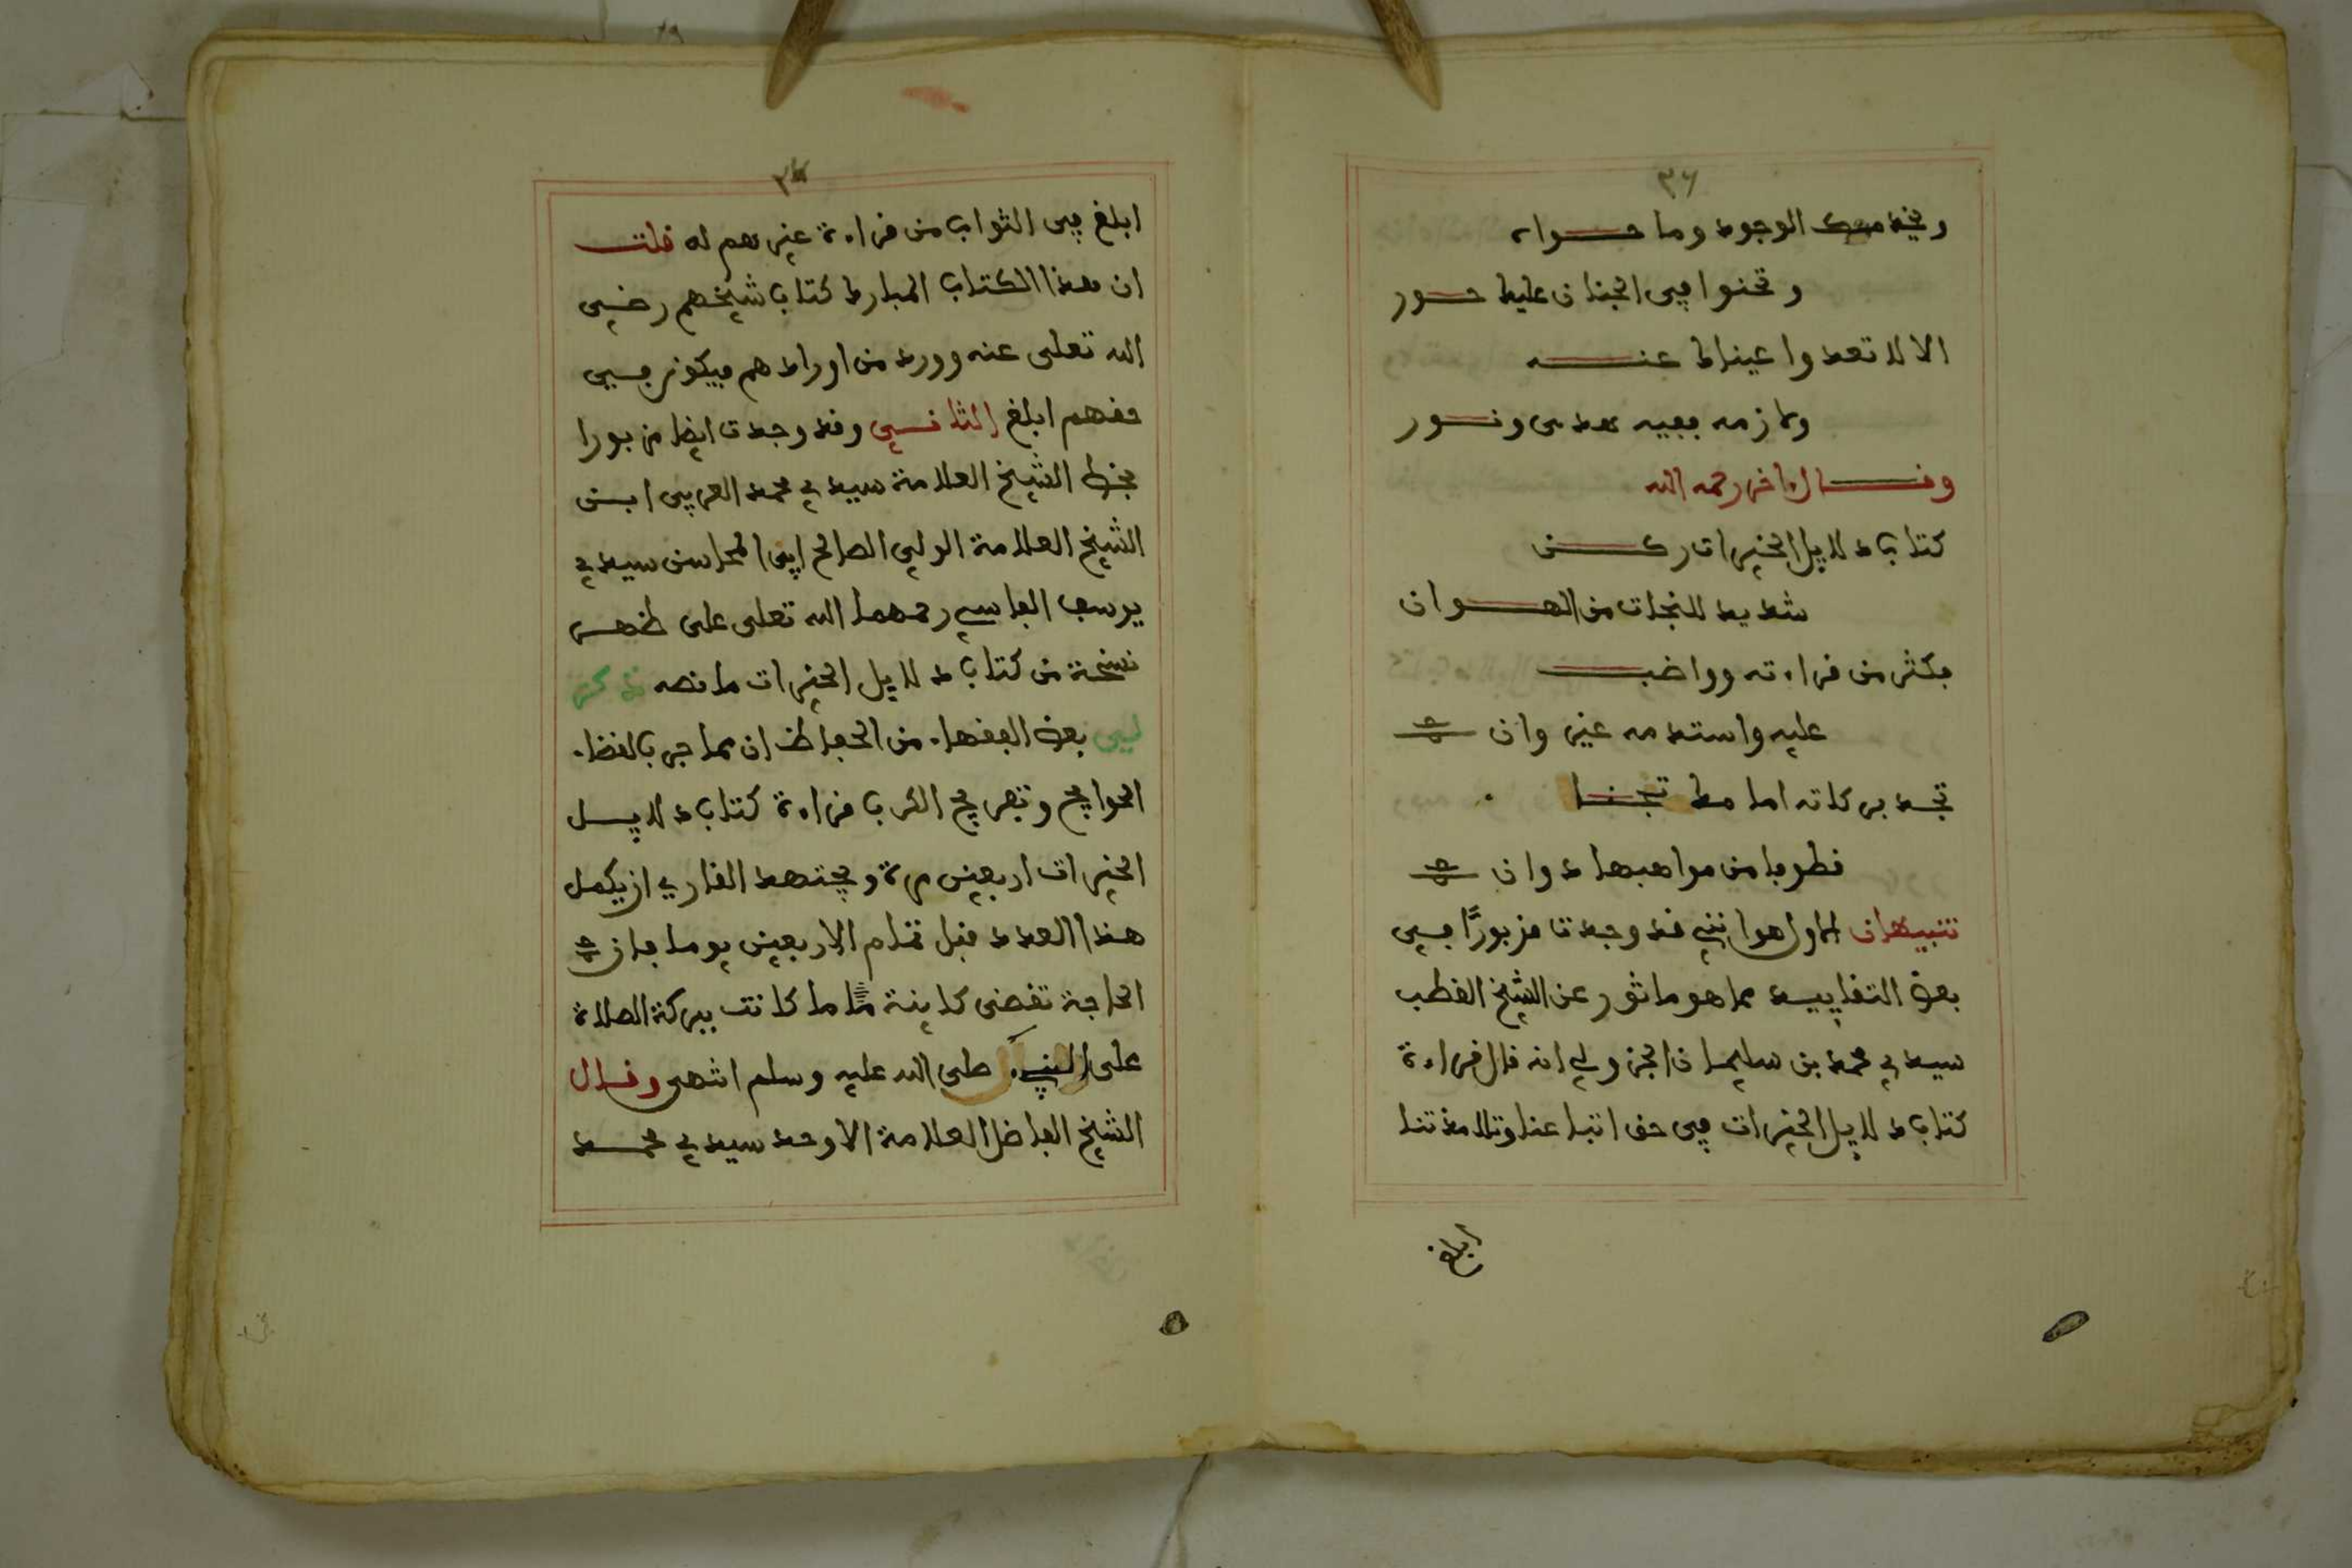 ٣٦
ويخدمك الوجود وما حواه
وتحنوا في الجنان عليك حور
الا لا تعدوا عيناك عنه
ولازمه ففيه هدى ونور
وقال اخر رحمه الله
كتاب دلايل الخيرات ركن
شديد للنجات من الهوان
فكثر من قراءته وواضب
عليه واستدمه غير وان
تجد بركاته اما
فطوبا من مواهبها دوان
تنبيهان الاول هو انني قد وجدت مزبورًا في
بعض التقاييد مما هو ماثور عن الشيخ القطب
سيدي محمد بن سليمان الجزولي انه قال قراءة
كتاب دلايل الخيرات في حق اتباعنا وتلامذتنا
ابلغ
ابلغ في الثواب من قراءة غيرهم له قلت
ان هذا الكتاب المبارك كتاب شيخهم رضي
الله تعلى عنه وورد من اورادهم فيكون في
حقهم ابلغ الثاني وقد وجدت ايضا مزبورا
بخط الشيخ العلامة سيدي محمد العربي ابن
الشيخ العلامة الولي الصالح ابي المحاسن سيدي
يوسف الفاسي رحمهما الله تعلى على ظهر
نسخة من كتاب دلايل الخيرات ما نصه ذكر
لي بعض الفقهاء من الحفاظ ان مما جرب لقضاء
الحوايج وتفريج الكرب قراءة كتاب دلايل
الخيرات اربعين مرة ويجتهد القاري ان يكمل
هذا العدد قبل تمام الاربعين يوما فان
الحاجة تقضى كاينة ما كانت ببركة الصلاة
على النبي صلى الله عليه وسلم انتهى وقال
الشيخ الفاضل العلامة الاوحد سيدي محمد